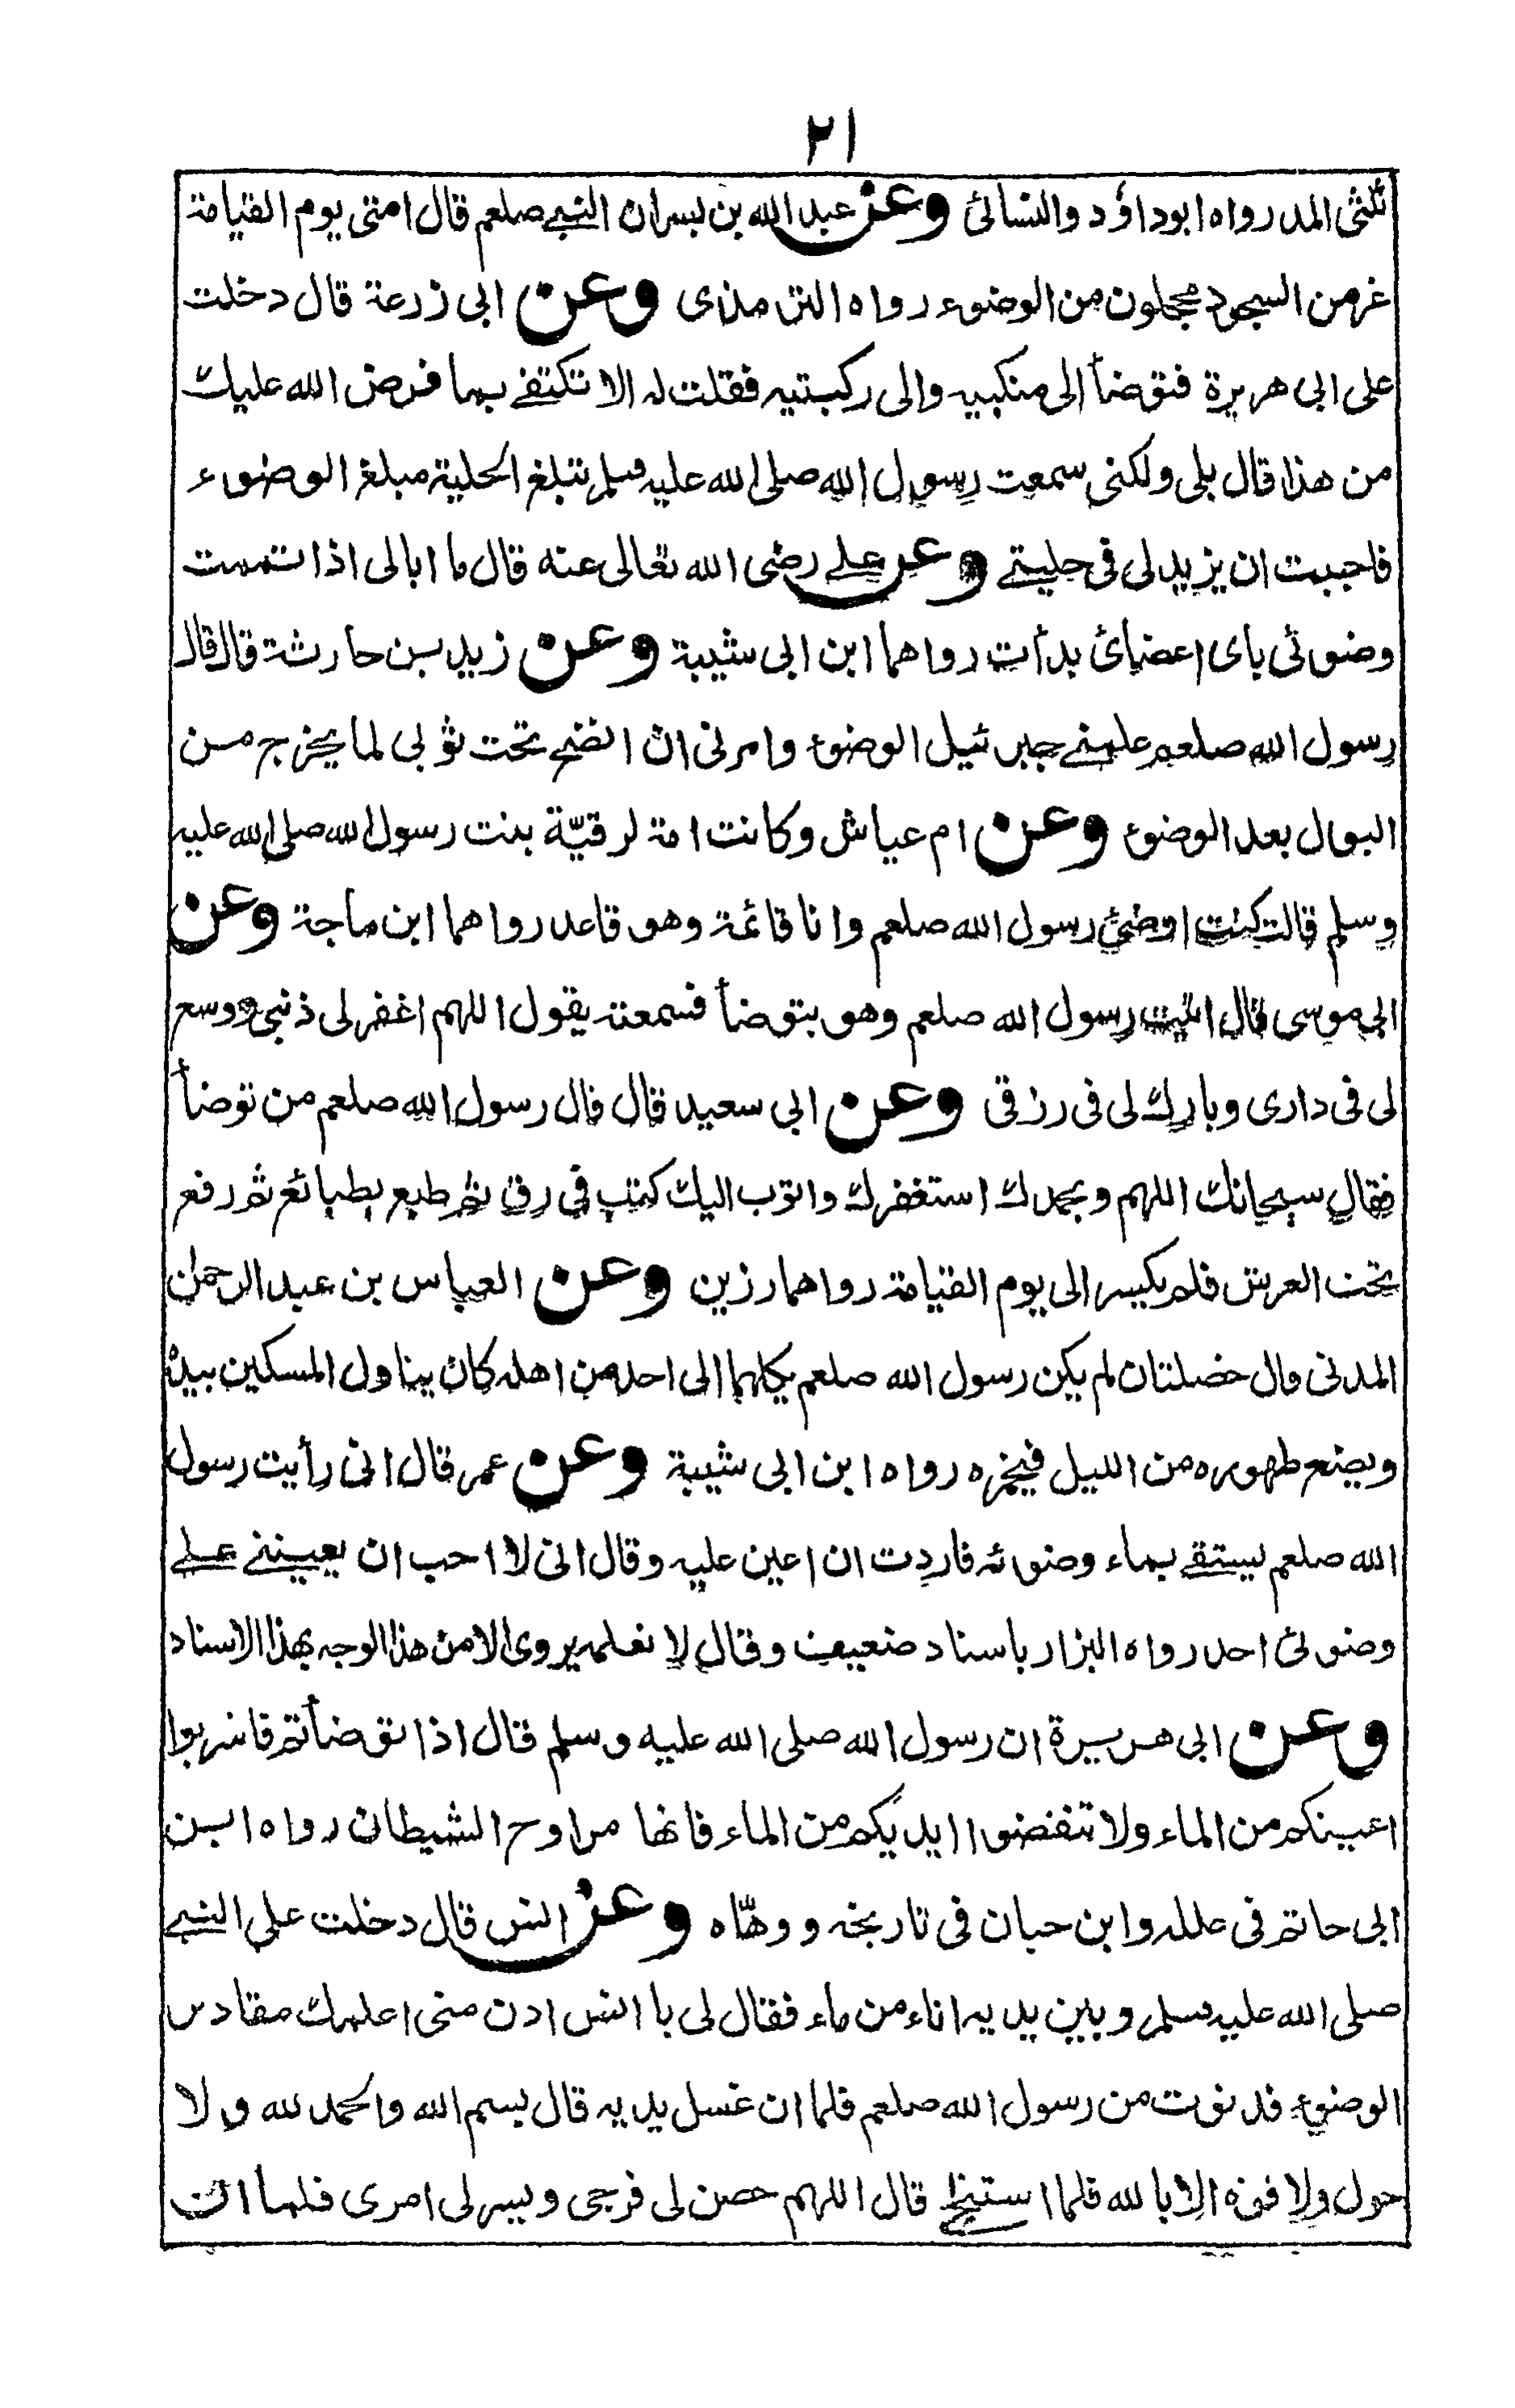 ٢١
ثلثى المد رواه ابوداؤد والنسائى وعن عبد الله بن بسر ان النبى صلعم قال امتى يوم القيامة
غر من السجود محجلون من الوضوء رواه الترمذى وعن ابى زرعة قال دخلت
على ابى هريرة فتوضأ الى منكبيه والى ركبتيه فقلت له الا تكتفى بما فرض الله عليك
من هذا قال بلى ولكنى سمعت رسول الله صلى الله عليه وسلم تبلغ الحلية مبلغ الوضوء
فاحببت ان يزيد لى فى حليتى وعن على رضى الله تعالى عنه قال ما ابالى اذا تممت
وضوئى باى اعضائى بدأت رواهما ابن ابى شيبة وعن زيد بن حارثة قال قال
رسول الله صلعم علمنى جبرئيل الوضوء وامرنى ان انضح تحت ثوبى لما يخرج من
البول بعد الوضوء وعن ام عياش وكانت امة لرقيّة بنت رسول الله صلى الله عليه
وسلم قالت كنت اوضئ رسول الله صلعم وانا قائمة وهو قاعد رواهما ابن ماجة وعن
ابى موسى قال اتيت رسول الله صلعم وهو يتوضأ فسمعته يقول اللهم اغفر لى ذنبى ووسع
لى فى دارى وبارك لى فى رزقى وعن ابى سعيد قال قال رسول الله صلعم من توضأ
فقال سبحانك اللهم وبحمدك استغفرك واتوب اليك كتب فى رق ثم طبع بطبائع ثم رفع
تحت العرش فلم يكسر الى يوم القيامة رواهما رزين وعن العباس بن عبد الرحمن
المدنى قال خصلتان لم يكن رسول الله صلعم يكلهما الى احد من اهله كان يناول المسكين بيده
ويضع طهوره من الليل فيخمره رواه ابن ابى شيبة وعن عمر قال انى رأيت رسول
الله صلعم يستقى بماء وضوئه فاردت ان اعين عليه وقال انى لا احب ان يعيننى على
وضوئى احد رواه البزار باسناد ضعيف وقال لا نعلمه يروى الا من هذا الوجه بهذا الاسناد
وعن ابى هريرة ان رسول الله صلى الله عليه وسلم قال اذا توضأتم فاشربوا
اعينكم من الماء ولا تنفضوا ايديكم من الماء فانها مراوح الشيطان رواه ابن
ابى حاتم فى علله وابن حبان فى تاريخه ووهّاه وعن انس قال دخلت على النبى
صلى الله عليه وسلم وبين يديه اناء من ماء فقال لى يا انس ادن منى اعلمك مقادير
الوضوء فدنوت من رسول الله صلعم فلما ان غسل يديه قال بسم الله والحمد لله ولا
حول ولا قوة الا بالله فلما استنجى قال اللهم حصن لى فرجى ويسر لى امرى فلما ان